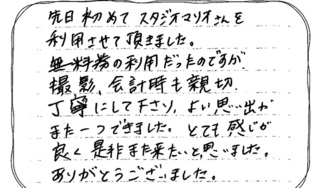 先日初めてスタジオマリオさんを
利用させて頂きました。
無料券の利用だったのですが
撮影、会計時も親切
丁寧にして下さり、よい思い出が
また一つできました。とても感じが
良く是非また来たいと思いました。
ありがとうございました。